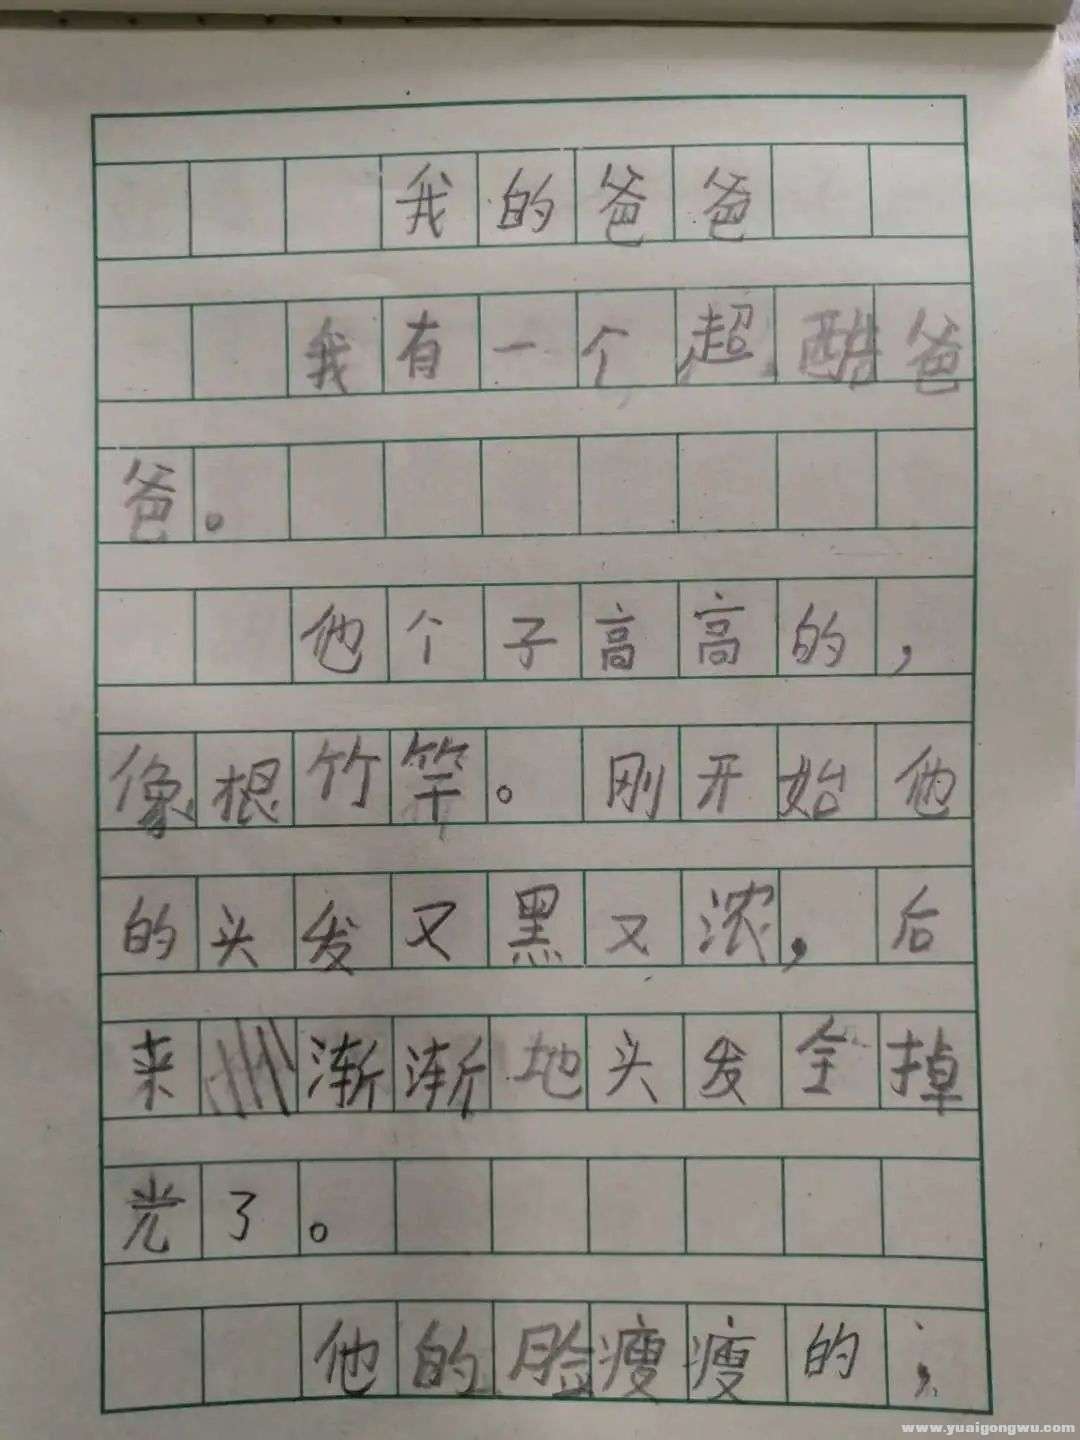 我的爸爸
我有一个超酷爸
爸。
他个子高高的，
像根竹竿。刚开始他
的头发又黑又浓，后
来渐渐地头发全掉
光了。
他的脸瘦瘦的，
www.yuaigongwu.com